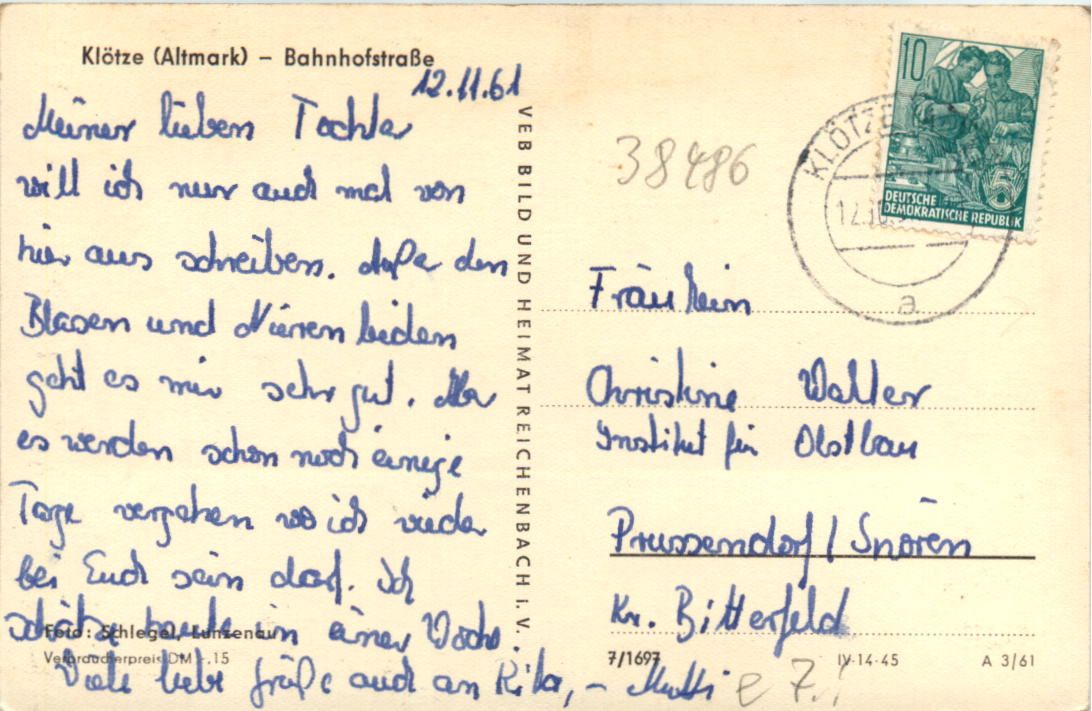 Klötze (Altmark) – Bahnhofstraße
12.11.61
Meiner lieben Tochter
will ich nun auch mal von
hier aus schreiben. Außer den
Blasen und Nieren leiden
geht es mir sehr gut. Aber
es werden schon noch einige
Tage vergehen wo ich wieder
bei Euch sein darf. Ich
schätze heute in einer Woche
Foto: Schlegel, Lunzenau
Verbraucherpreis DM -.15
Viele liebe Grüße auch an Rita, – Mutti
VEB BILD UND HEIMAT REICHENBACH i. V.
38486
10
5
DEUTSCHE
DEMOKRATISCHE REPUBLIK
KLÖTZE
a
Fräulein
Christine Walter
Institut für Obstbau
Prussendorf / Spören
Kr. Bitterfeld
7/1697
IV-14-45
A 3/61